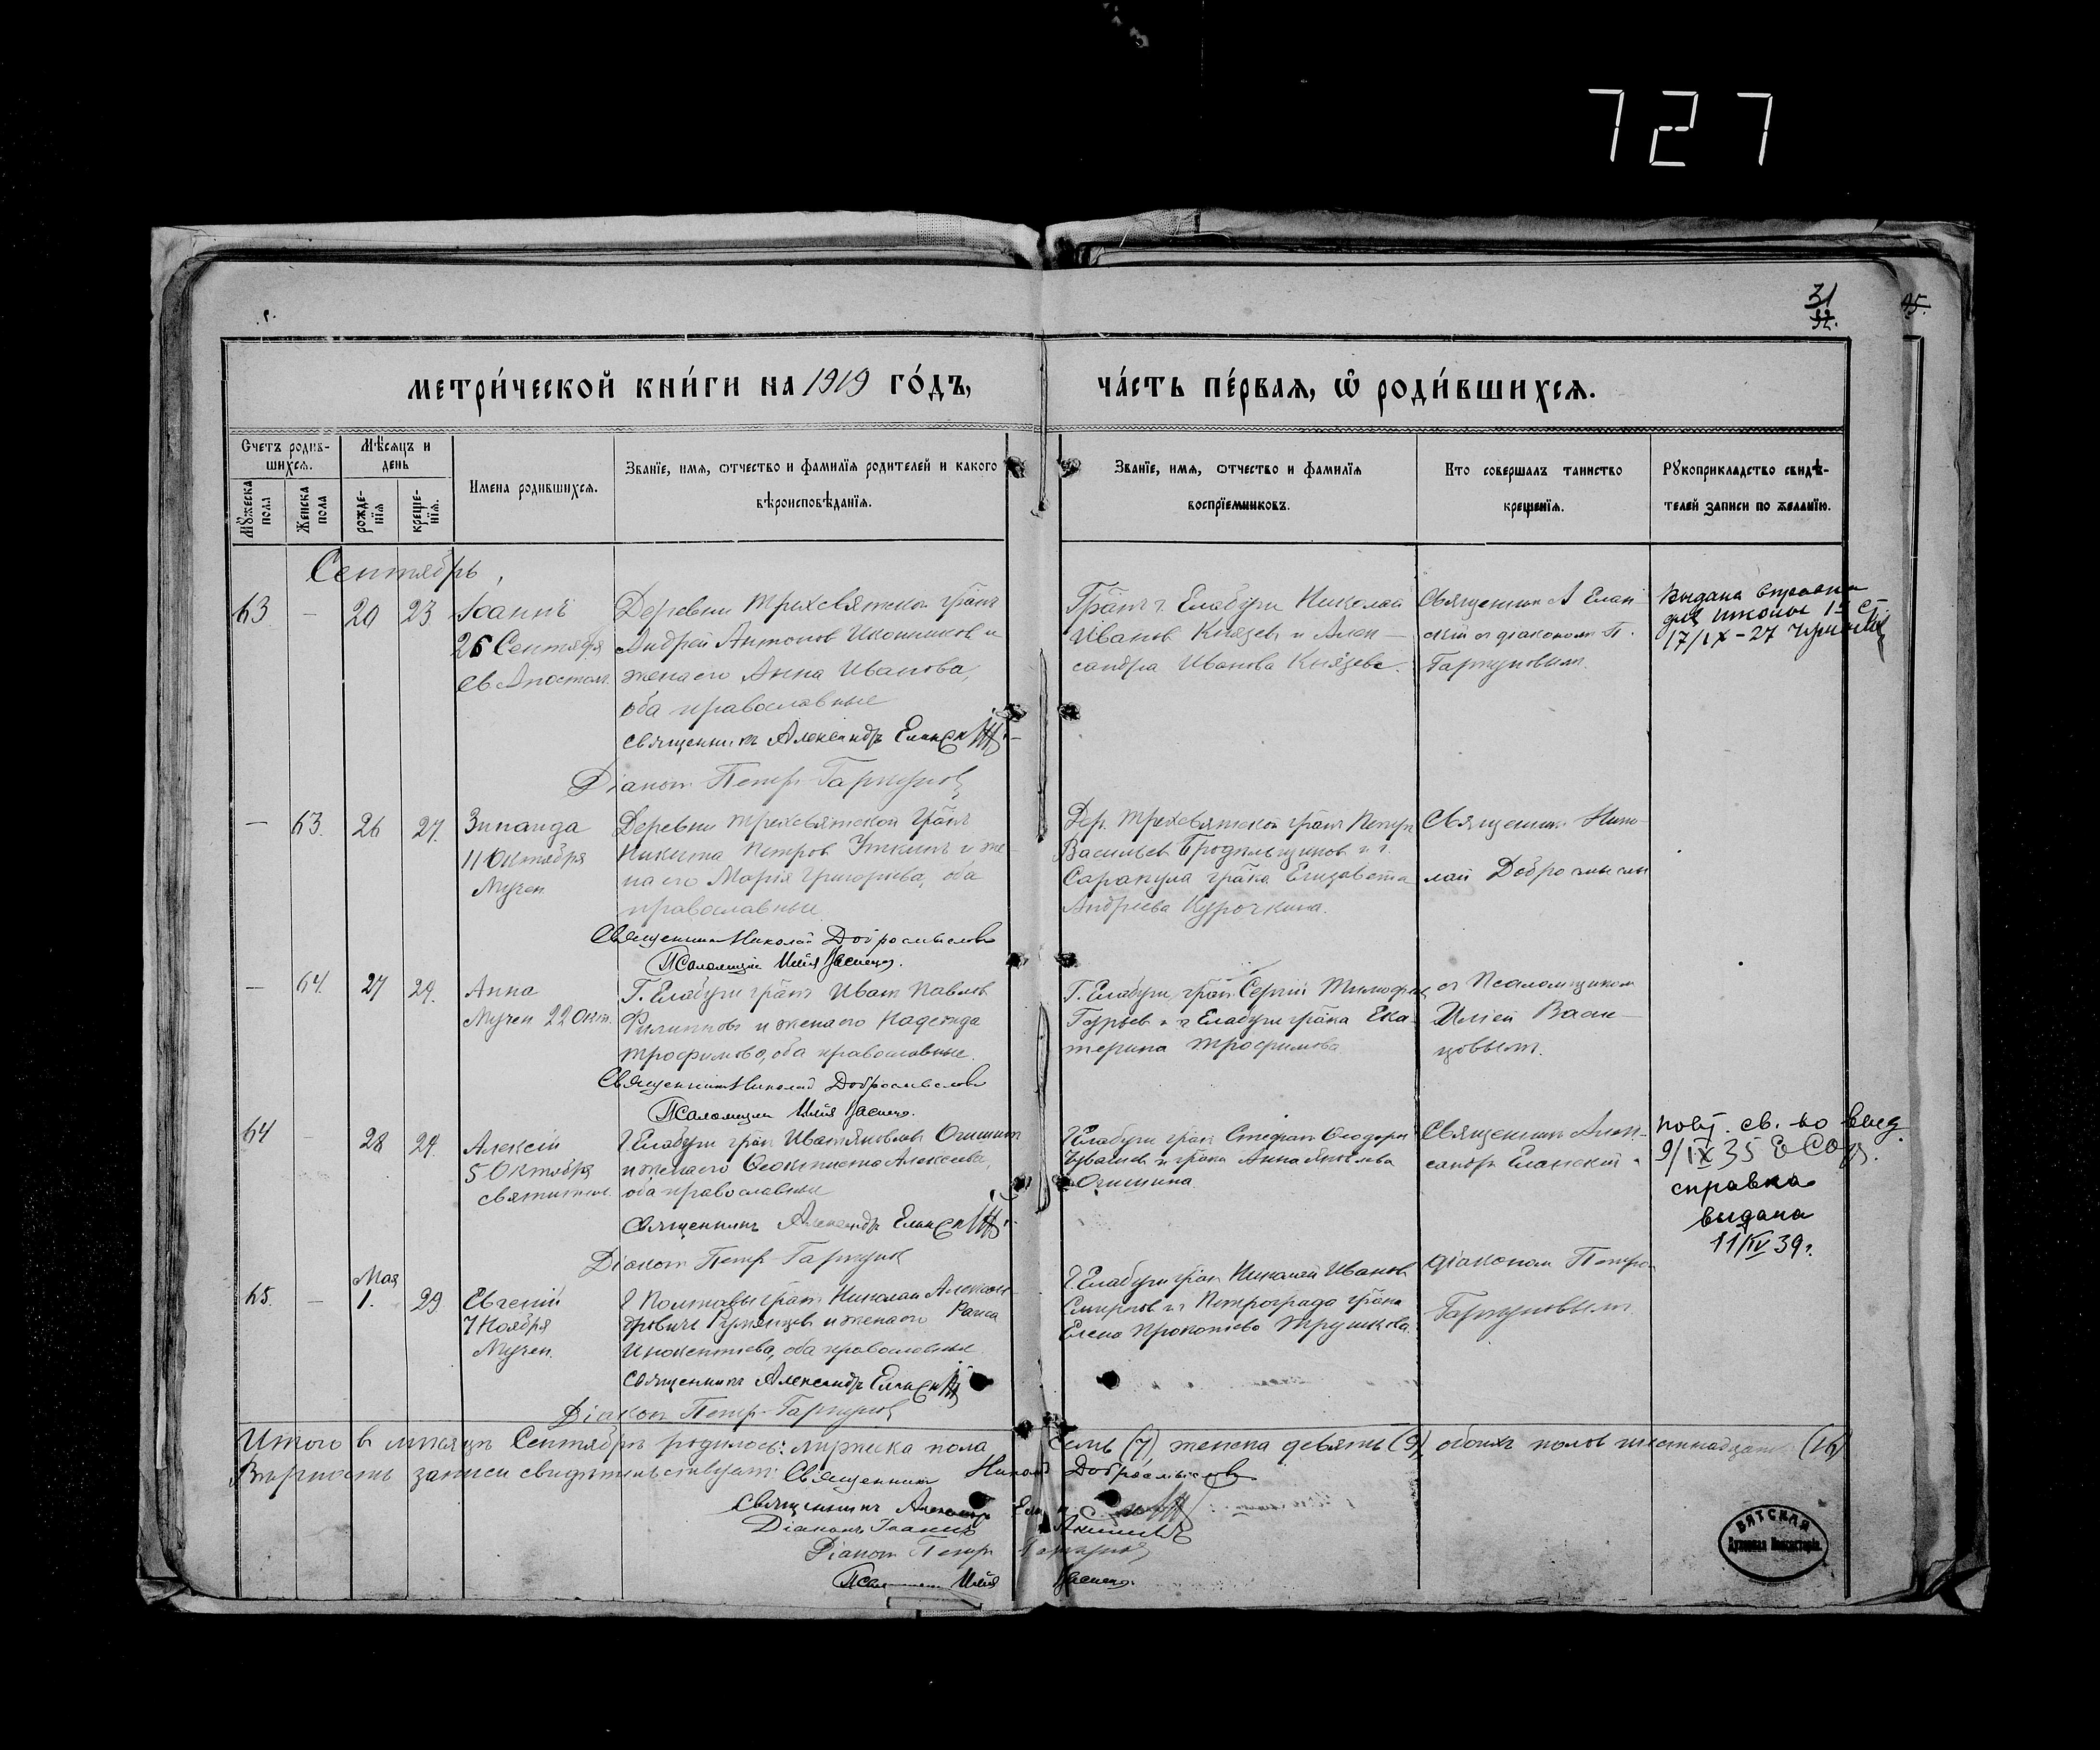 727
31
32.
45.
метри́ческой кни́ги на 1919 го́дъ,
ча́сть пе́рвая, ѡ роди́вшихся.
Счетъ родив-
шихся.
Мѣсяцъ и
день
Мꙋжеска
пола
Женска
пола
рожде-
нїя
креще-
нїя.
Имена родившихся.
Званїе, имя, ѻтчество и фамилїя родителей и какого
вѣроисповѣданїя.
Званїе, имя, ѻтчество и фамилїя
воспрїемниковъ.
Кто совершалъ таинство
крещенїя.
Рꙋкоприкладство свидѣ-
телей записи по желанїю.
Сентябрь,
63 — 20 23
Іоаннъ
26 Сентября
св. Апостол.
Деревни Трехсвятской гражд
Андрей Антонов Иконников и
жена его Анна Иванова,
оба православные
священникъ Александръ Елански
Діакон Петр Гаркунов
Гражд г. Елабуги Николай
Иванов Князев и Алек-
сандра Иванова Князева.
Священник А Елан-
скій с діаконом П.
Гаркуновым.
Выдана справка
для школы 1й ст.
17/IX-27
— 63. 26 27.
Зинаида
11 Октября
Мучен.
Деревни Трехсвятской гражд
Никита Петров Уткинъ и же-
на его Марія Григорьева, оба
православные.
Священник Николай Добромыслов
Псаломщик Илія Васнецов.
Дер. Трехсвятской гражд Петръ
Васильев Бродильщиков и г.
Сарапула гражд Елизавета
Андреева Курочкина.
Священник Нико-
лай Добромыслов
— 64. 27 29.
Анна
Мучен 22 Окт.
Г. Елабуги гражд Иван Павлов
Филиппов и жена его Надежда
Трофимова, оба православные.
Священник Николай Добромыслов
Псаломщик Илія Васнецов.
Г. Елабуги, гражд Сергій Тимофеев
Гурьев и г Елабуги гражд Ека-
терина Трофимова
с Псаломщиком
Иліей Васне-
цовым.
64 — 28 29.
Алексій
5 Октября
святител.
Г Елабуги граж Иван Яковлев
и жена его Феоктиста Алексеева,
оба православные
священникъ Александр Елански
Діакон Петр Гаркунов
Г Елабуги граж Стефан Феодоров
Чувашев и гражд Анна Яковлева
Священник Алек-
сандръ Еланскій с
діаконом Петром
Гаркуновым.
повт. св. во выд.
9/IX 35
справка
выдана
11/IV 39г.
65. — Мая 1. 29
Евгеній
7 Ноября
Мучен.
Г Полтавы граж Николай Алексан-
дрович Румянцев и жена его Раиса
Инокентиева, оба православные
священникъ Александръ Елански
Діакон Петр Гаркунов
Г. Елабуги граж Николай Иванов
Смирнов и г Петрограда гражд
Елена Прокопіева Трушкова.
Итого в месяце Сентябрь родилось: мужска пола семь (7) женска девять (9) обоихъ полов шестнадцать (16)
Верность записи свидетельствуют: Священник Николай Добромыслов
священникъ Александр Елански
Діаконъ Іоаннъ
Діакон Петр Гаркунов
Псаломщик Илія Васнецов.
ВЯТСКАЯ
Духовная Консисторія.